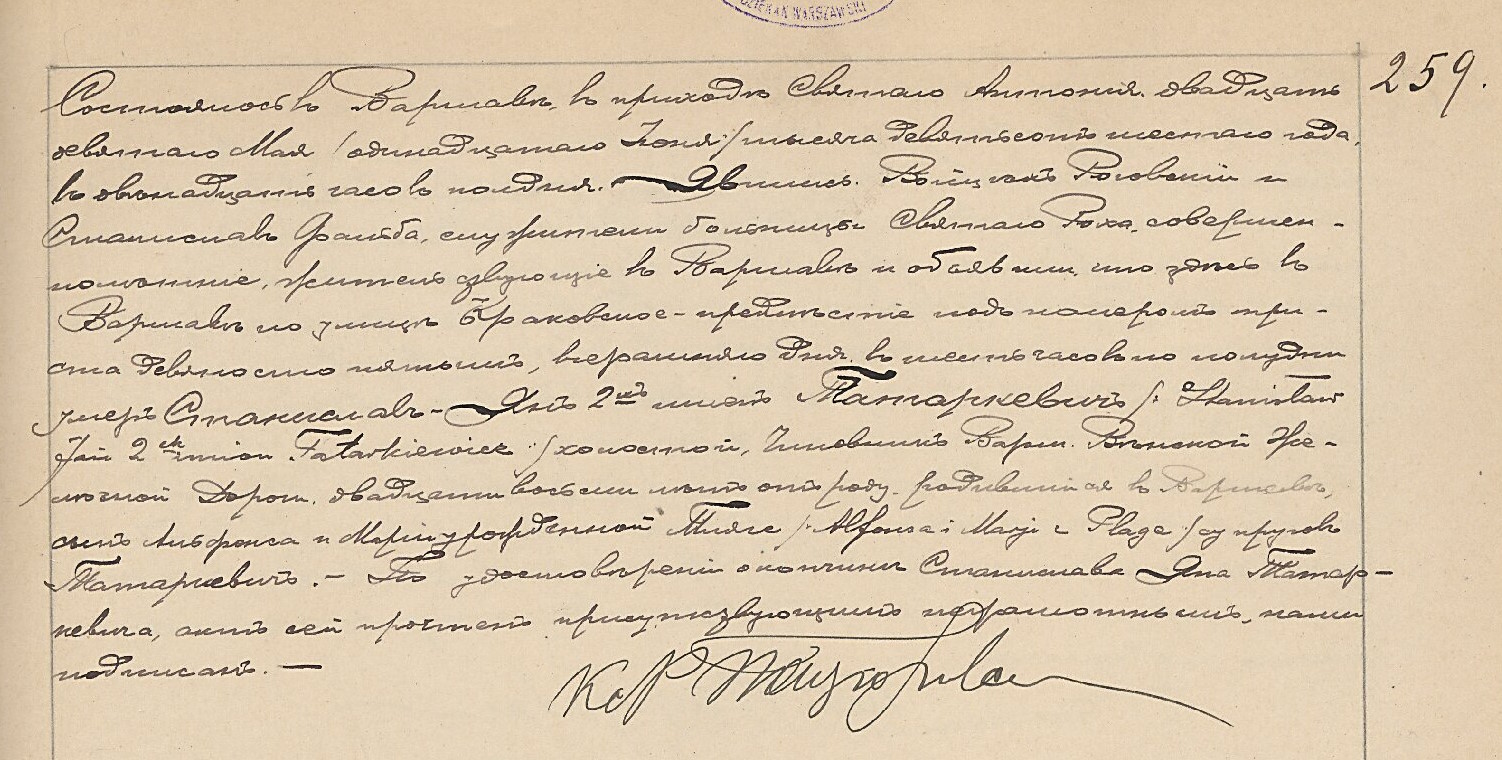 DZIEKAN WARSZAWSKI
259.
Состоялось въ Варшавѣ, въ приходѣ Святаго Антонія, двадцать
девятаго Мая /одинадцатаго Іюня/ тысяча девятьсотъ шестаго года,
въ двѣнадцать часовъ полдня. — Явились: Войцѣхъ и
Станиславъ Фалъба, служители больницы Святаго Роха, совершен-
нолѣтніе, жительствующіе въ Варшавѣ и объявили, что здѣсь въ
Варшавѣ по улицѣ Краковское-предмѣстіе подъ номеромъ три-
ста девяносто пятымъ, вчерашняго дня, въ шесть часовъ по полудни
умеръ Станиславъ-Янъ 2хъ именъ Татаркевичъ /: Stanisław
Jan 2ch imion Tatarkiewicz :/ холостой, Чиновникъ Варш. Вѣнской Же-
лѣзной Дороги, двадцати восьми лѣтъ отъ роду, родившійся въ Варшавѣ,
сынъ Альфонса и Маріи урожденной Пляге /: Alfonsa i Marji z Plage :/ супруговъ
Татаркевичъ. — По удостовѣреніи о кончинѣ Станислава Яна Татар-
кевича, актъ сей прочтенъ присутствующимъ неграмотнымъ, нами
подписанъ. —